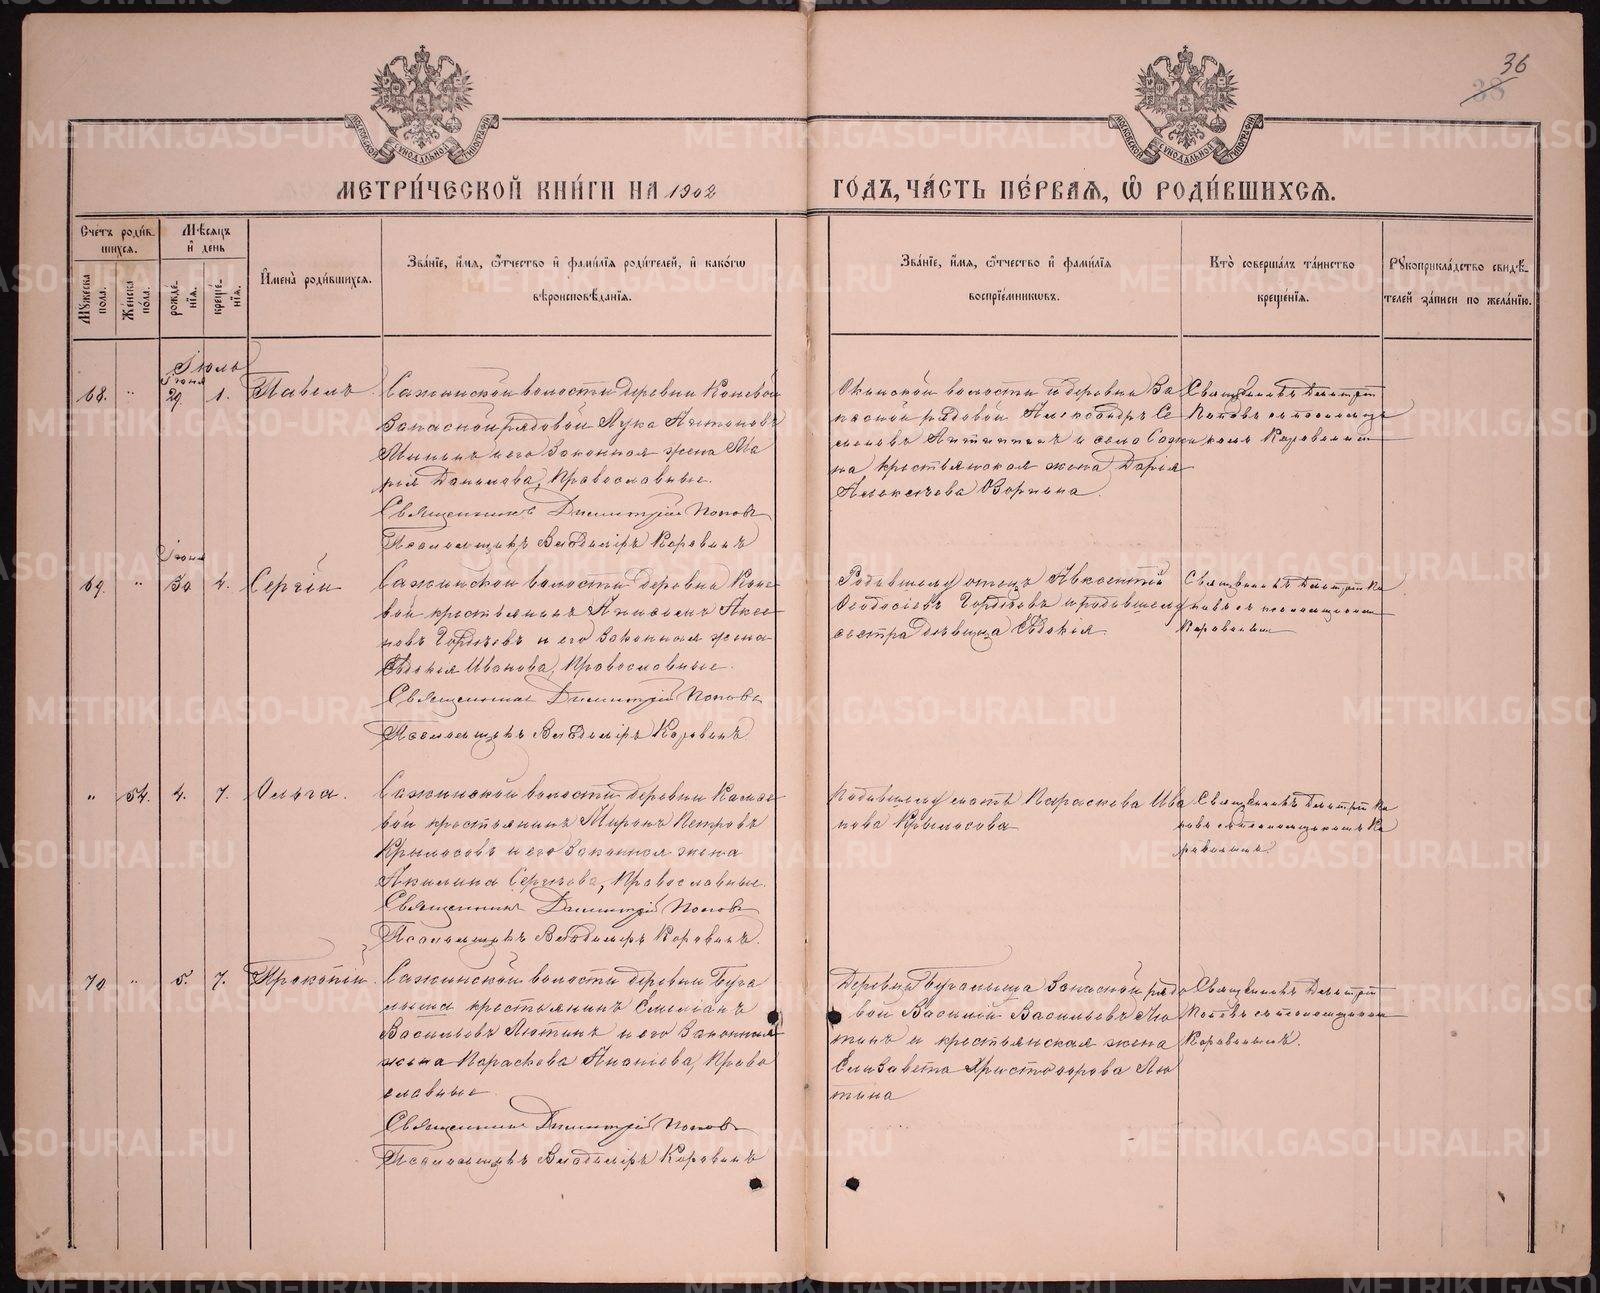 36
38
МЕТРИ́ЧЕСКОЙ КНИ́ГИ НА 1902
ГО́ДЪ, ЧА́СТЬ ПЕ́РВАЯ, Ѡ РОДИ́ВШИХСЯ.
Сче́тъ роди́в-
шихся.
Мꙋжеска
пола.
Же́нска
по́ла.
Мѣ́сяцъ
и҆ день
рожде́-
нїя.
креще́-
нїя.
И҆мена̀ роди́вшихся.
Зва́нїе, и҆́мя, ѻ҆́тчество и҆ фами́лїя роди́телей, и҆ како́гѡ
вѣроисповѣ́данїя.
Зва́нїе, и҆́мя, ѻ҆́тчество и҆ фами́лїя
воспрїе́мникѡвъ.
Кто̀ соверша́лъ та́инство
креще́нїя.
Рꙋкоприкла́дство свидѣ́-
телей за́писи по жела́нїю.
Іюль
68. " Іюня 29 1. Павелъ
Сажинской волости деревни Коневой
запасной рядовой Лука Антоновъ
и его законная жена Ма
рья Данилова, Православные.
Священникъ Димитрій Поповъ
Псаломщикъ Владиміръ Коровинъ
Окинской волости и деревни За
пасной рядовой Александръ Се
меновъ и село Сажи
на крестьянская жена Дарья
Алексѣева
Священникъ Димитрій
Поповъ съ псаломщи
комъ Коровинымъ
69. " Іюня 30 2. Сергій
Сажинской волости деревни Коне
вой крестьянинъ Анисимъ Аксе
новъ Гордѣевъ и его законная жена
Евдокія Иванова, Православные.
Священникъ Димитрій Поповъ
Псаломщикъ Владиміръ Коровинъ
Родившему отецъ Авксентій
Ѳеодосіевъ Гордѣевъ и родившему
сестра дѣвица Евдокія
Священникъ Димитрій По
повъ съ псаломщикомъ
Коровинымъ
" 54. 4. 7. Ольга.
Сажинской волости деревни
вой крестьянинъ Миронъ Петровъ
Крылосовъ и его законная жена
Акилина Сергѣева, Православные.
Священникъ Димитрій Поповъ
Псаломщикъ Владиміръ Коровинъ.
мать Параскева Ива
нова Крылосова
Священникъ Димитрій По
повъ съ псаломщикомъ Ко
ровинымъ.
70 " 5. 7. Прокопій
Сажинской волости деревни Буга
лыша крестьянинъ Емеліанъ
Васильевъ Лютинъ и его законная
жена Параскева Ананіева, Право
славные
Священникъ Димитрій Поповъ
Псаломщикъ Владиміръ Коровинъ
Деревни Бугалыша запасной рядо
вой Василій Васильевъ Лю
тинъ и крестьянская жена
Елизавета Христофорова Лю
тина
Священникъ Димитрій
Поповъ съ псаломщикомъ
Коровинымъ.
METRIKI.GASO-URAL.RU